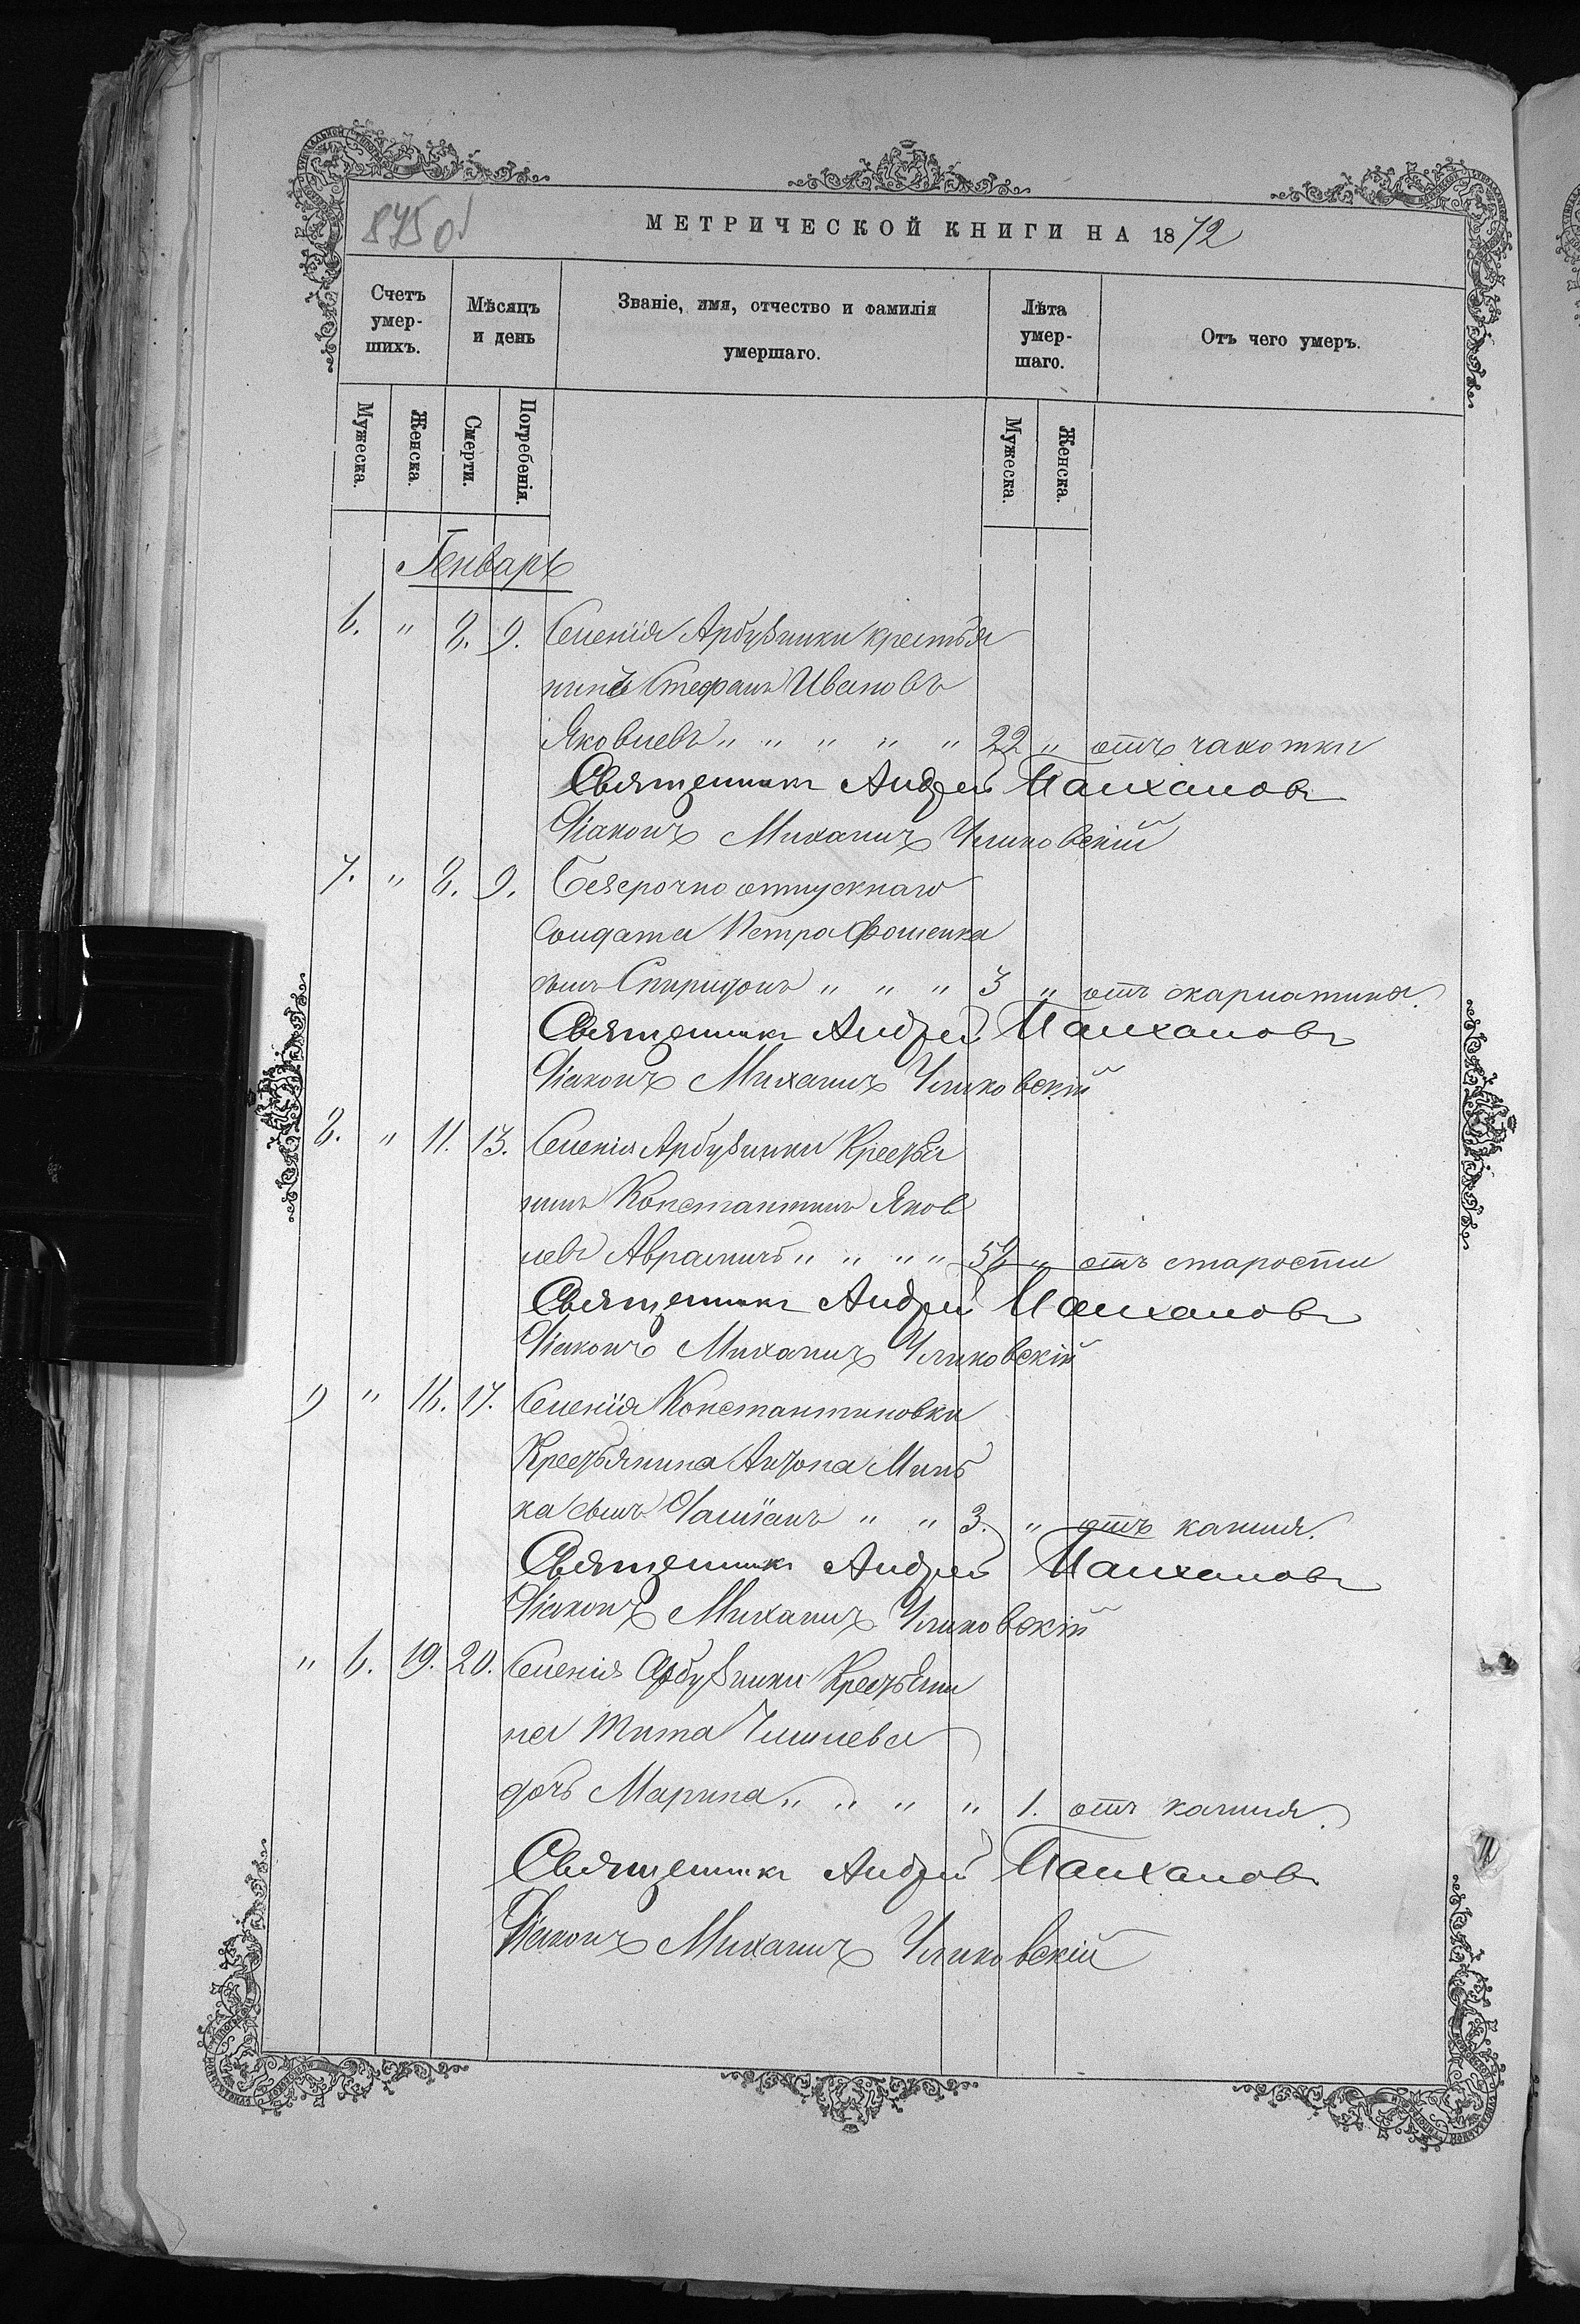 875 об
МЕТРИЧЕСКОЙ КНИГИ НА 1872
Счетъ умер-шихъ.
Мѣсяцъ и день
Званіе, имя, отчество и фамилія умершаго.
Лѣта умер-шаго.
Отъ чего умеръ.
Мужеска. Женска. Смерти. Погребенія. Мужеска. Женска.
Генварь
6. " 8. 9. Селенія Арбузинки крестья
нинъ Стефанъ Ивановъ
Яковлевъ " " " " " 22 " отъ чахотки
Священникъ Андрей
Діаконъ Михаилъ
7. " 8. 9. Безсрочно отпускнаго
солдата Петра Фоменка
сынъ Спиридонъ " " " 3 " отъ скарлатина.
Священникъ Андрей
Діаконъ Михаилъ
8. " 11. 13. Селенія Арбузинки Крестья
нинъ Константинъ Яков
левъ " " " " 52 " отъ старости
Священникъ Андрей
Діаконъ Михаилъ
9 " 16. 17. Селенія Константиновки
Крестьянина Антона
ка сынъ " " 3. " отъ кашля.
Священникъ Андрей
Діаконъ Михаилъ
" 6. 19. 20. Селенія Арбузинки Крестьяни
на Тита
дочь Марина " " " " 1. отъ кашля.
Священникъ Андрей
Діаконъ Михаилъ